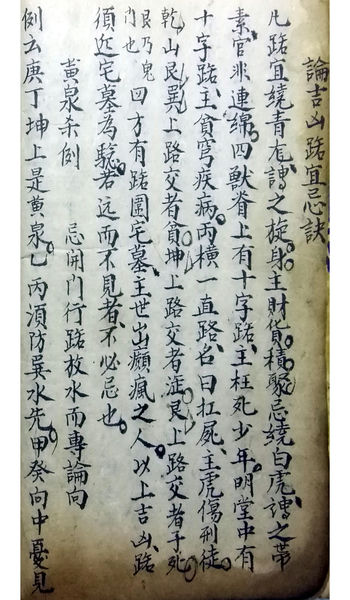 論吉凶路宜忌訣
凡路宜繞青龙謂之旋身主財貨積聚忌繞白虎謂之帶
素官非連綿四獸脊上有十字路主枉死少年明堂中有
十字路主貧穷疾病两橫一直路名曰扛屍主虎傷刑徒
乾山艮巽上路交者貧坤上路交者滛艮上路交者手死
艮乃鬼門也四方有路圍宅墓主世出癲瘋之人以上吉凶路
須近宅墓為騐若远而不見者不必忌也
黄泉杀例 忌開門行路放水而專論向
例云庚丁坤上是黄泉乙丙須防巽水先甲癸向中憂見